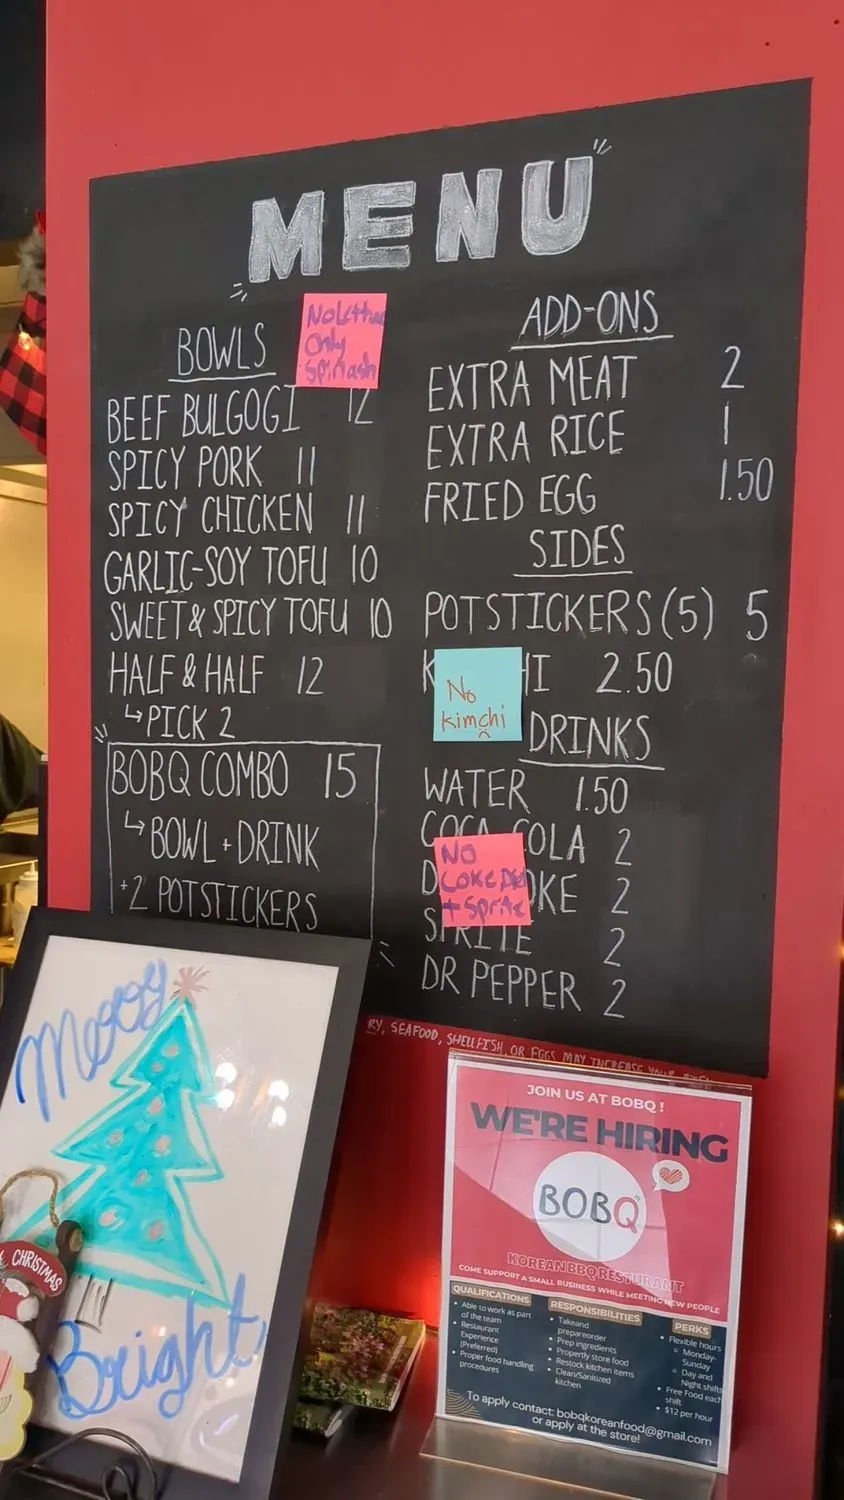 MENU
BOWLS
No Lettuce
Only
Spinash
BEEF BULGOGI 12
SPICY PORK 11
SPICY CHICKEN 11
GARLIC-SOY TOFU 10
SWEET & SPICY TOFU 10
HALF & HALF 12
↳ PICK 2
BOBQ COMBO 15
↳ BOWL + DRINK
+2 POTSTICKERS
ADD-ONS
EXTRA MEAT 2
EXTRA RICE 1
FRIED EGG 1.50
SIDES
POTSTICKERS (5) 5
K HI 2.50
No
kimchi
DRINKS
WATER 1.50
COCA COLA 2
D OKE 2
NO
Coke
+ Sprite
SPRITE 2
DR PEPPER 2
RY, SEAFOOD, SHELLFISH, OR EGGS MAY INCREASE YOUR
Merry
Bright
CHRISTMAS
JOIN US AT BOBQ !
WE'RE HIRING
BOBQ
KOREAN BBQ RESTURANT
COME SUPPORT A SMALL BUSINESS WHILE MEETING NEW PEOPLE
QUALIFICATIONS
• Able to work as part
of the team
• Restaurant
Experience
(Preferred)
• Proper food handling
procedures
RESPONSIBILITIES
• Takeand
prepareorder
• Prep ingredients
• Propertly store food
• Restock kitchen items
• Clean/Sanitized
kitchen
PERKS
• Flexible hours
○ Monday-
Sunday
○ Day and
Night shifts
• Free Food each
shift
• $12 per hour
To apply contact: bobqkoreanfood@gmail.com
or apply at the store!